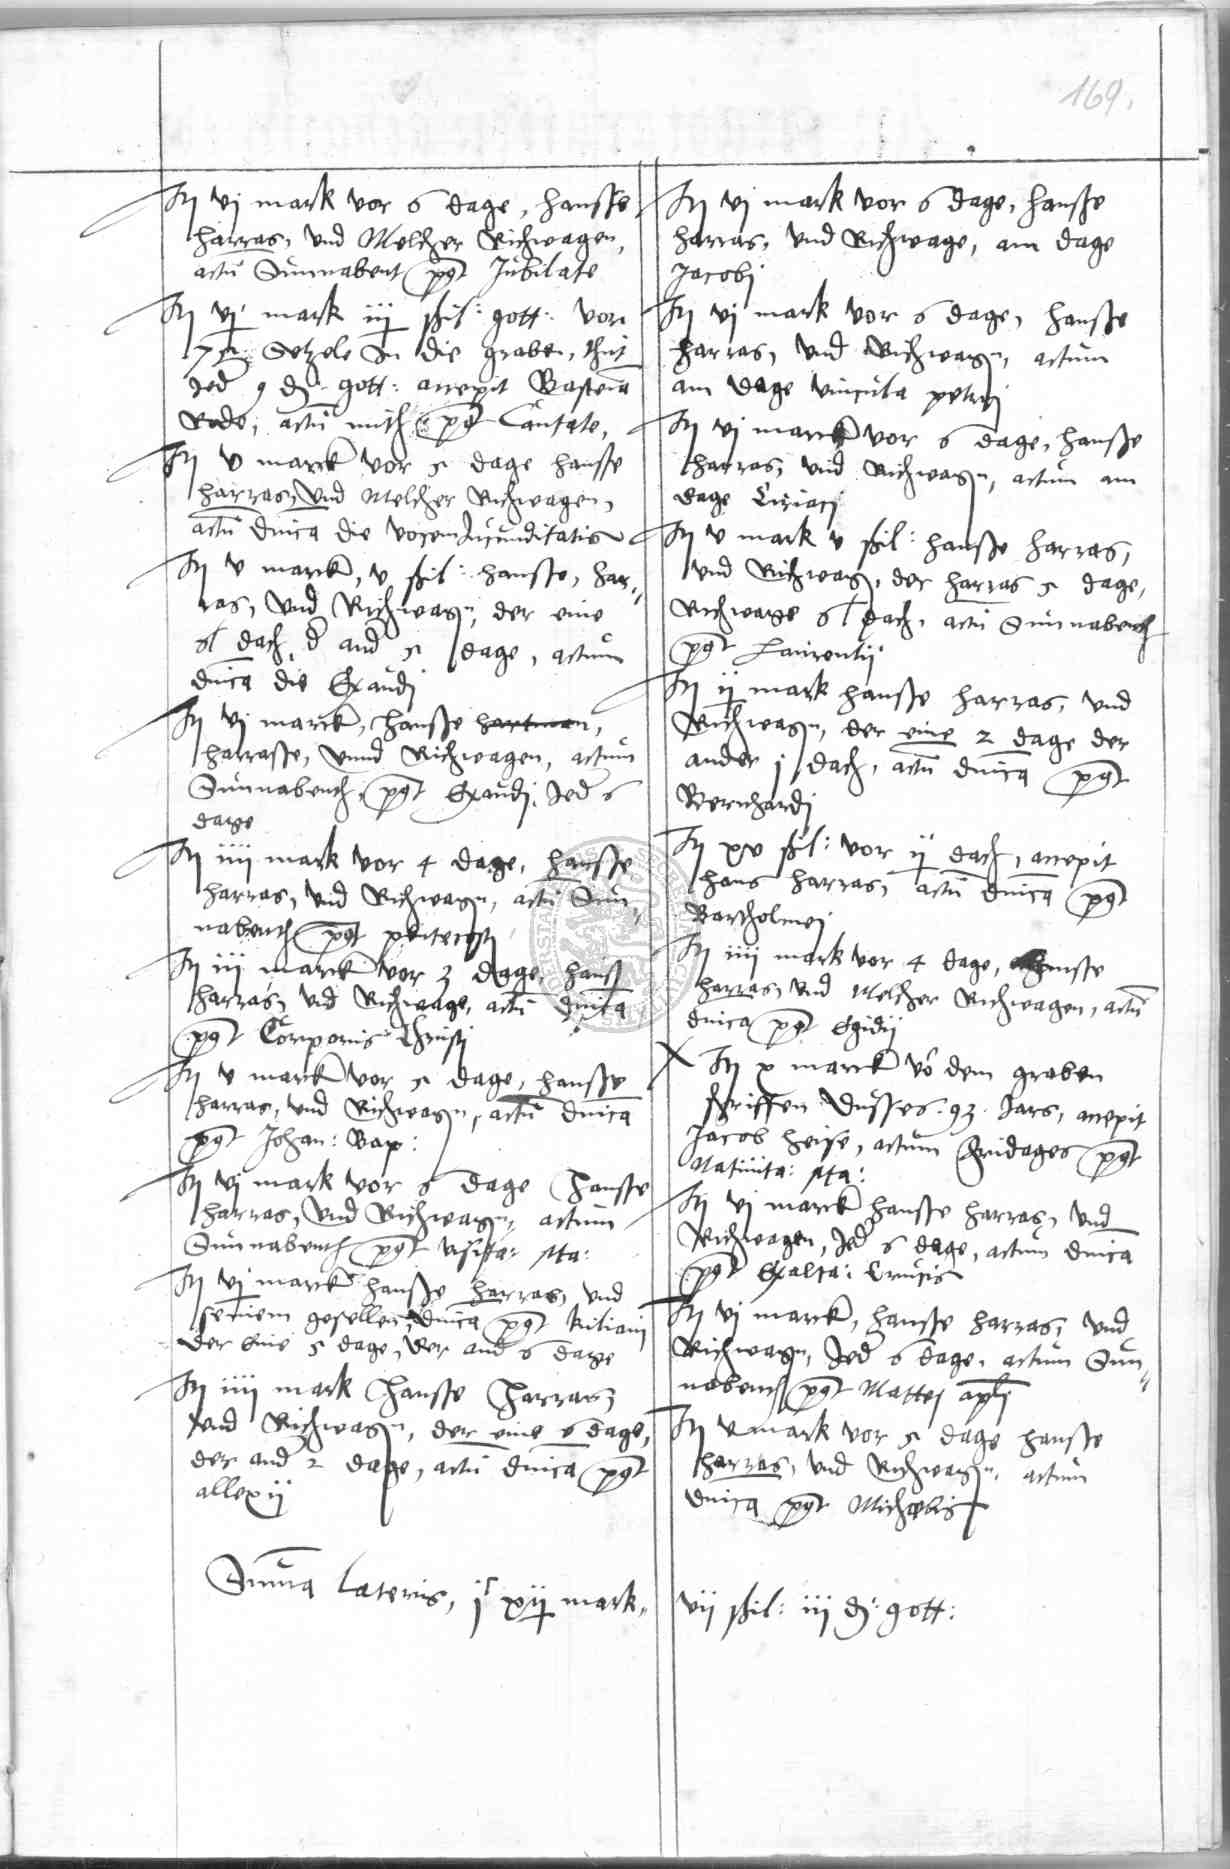 169.
It vj mark vor 6 dage, hansse
harras, vnd Melcher Richwagen,
actū Sunnabent pḡt Jubilate
It vj mark iij ßil: gott: vor
Setzele in die graben, thut
Jed 9 d gott: accepit Bastein
Rode, actū mith pḡt Cantate,
It v marck vor 5 dage hansse
harras, vnd Melcher Richwagen,
actū dnica die vocem Jucunditatis
It v marck, v ßil: hansse, har=
ras, vnd Richwagn, der eine
dach, d and 5 dage, actum
dnica die Exaudj
It vj marck, hansse hartman,
harrasse, vnnd Richwagen, actum
Sunnabenth, pḡt Exaudj, Jed 6
dage
It iiij mark vor 4 dage, hansse
harras, vnd Richwagn, actū Sun=
nabenth pḡt pentecosti
It iij marck vor 3 dage, hanß
harras, vnd Richwage, actū dnica
pḡt Corporis Christj
It v marck vor 5 dage, hansse
harras, vnd Richwagn, actū dnica
pḡt Johan: Bap:
It vj mark vor 6 dage Hansse
harras, vnd Richwagn, actum
Sunnabenth pḡt visita: Ma:
It vj marck hansse harras, vnd
seinem gesellen, dnica pḡt kilianj
der eine 5 dage, der and 6 dage
It iiij mark Hansse Harras,
vnd Richwagn, der eine 6 dage,
der and 2 dage, actū dnica pḡt
allexij
It vj mark vor 6 dage, hansse
harras, vnd Richwage, am dage
Jacobj
It vj mark vor 6 dage, hansse
harras, vnd Richwagn, actum
am dage vincula petrj
It vj marck vor 6 dage, hansse
harras, vnd Richwagn, actum am
dage Ciriacj
It v mark v ßil: hansse harras,
vnd Richwagn, der harras 5 dage,
Richwage dach, actū Sunnabenth
pḡt Laurentij
It ij mark hansse harras, vnd
Richwagn, der eine 2 dage der
ander j dach, actū dnica pḡt
Bernhardj
It xv ßil: vor ij dach, accepit
hans harras, actū dnica pḡt
Bartholmej
It iiij mark vor 4 dage, hansse
harras, vnd Melcher Richwagen, actū
dnica pḡt Egidij
X It x marck vō dem graben
dusses 93 Jars, accepit
Jacob heise, actum fridages pḡt
Natiuita: Ma:
It vj marck hansse harras, vnd
Richwagen, Jed 6 dage, actum dnica
pḡt Exalta: Crucis
It vj marck, hansse harras, vnd
Richwagn, Jed 6 dage, actum Sun=
nabenth pḡt Mattej apl̄j
It v mark vor 5 dage hansse
harras, vnd Richwagn, actum
dnica pḡt Michaelis
Suma Lateris, xij mark, vij ßil: iij d: gott: